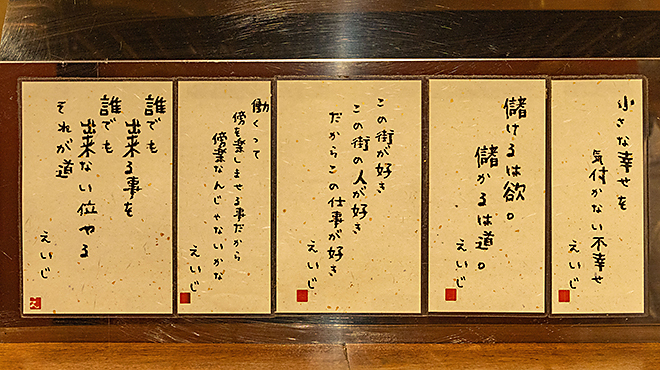 小さな幸せを
気付かない不幸せ
えいじ
儲けるは欲。
儲かるは道。
えいじ
この街が好き
この街の人が好き
だからこの仕事が好き
えいじ
働くって
傍を楽しませる事だから
傍楽なんじゃないかな
えいじ
誰でも
出来る事を
誰でも
出来ない位やる
それが道
えいじ